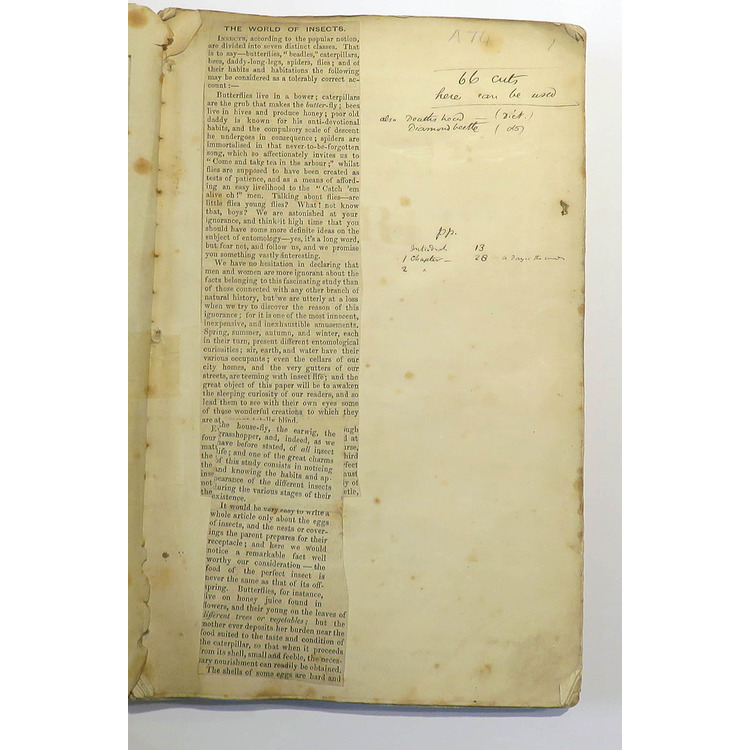 THE WORLD OF INSECTS.
INSECTS, according to the popular notion,
are divided into seven distinct classes. That
is to say—butterflies, "beadles," caterpillars,
bees, daddy-long-legs, spiders, flies; and of
their habits and habitations the following
may be considered as a tolerably correct ac-
count:—
Butterflies live in a bower; caterpillars
are the grub that makes the butter-fly; bees
live in hives and produce honey; poor old
daddy is known for his anti-devotional
habits, and the compulsory scale of descent
he undergoes in consequence; spiders are
immortalised in that never-to-be-forgotten
song, which so affectionately invites us to
"Come and take tea in the arbour;" whilst
flies are supposed to have been created as
tests of patience, and as a means of afford-
ing an easy livelihood to the "Catch 'em
alive oh!" men. Talking about flies—are
little flies young flies? What! not know
that, boys? We are astonished at your
ignorance, and think it high time that you
should have some more definite ideas on the
subject of entomology—yes, it's a long word,
but fear not, and follow us, and we promise
you something vastly interesting.
We have no hesitation in declaring that
men and women are more ignorant about the
facts belonging to this fascinating study than
of those connected with any other branch of
natural history, but we are utterly at a loss
when we try to discover the reason of this
ignorance; for it is one of the most innocent,
inexpensive, and inexhaustible amusements.
Spring, summer, autumn, and winter, each
in their turn, present different entomological
curiosities; air, earth, and water have their
various occupants; even the cellars of our
city homes, and the very gutters of our
streets, are teeming with insect life; and the
great object of this paper will be to awaken
the sleeping curiosity of our readers, and so
lead them to see with their own eyes some
of those wonderful creations to which they
are at totally blind.
the house-fly, the earwig, the
grasshopper, and, indeed, as we
have before stated, of all insect
life; and one of the great charms
of this study consists in noticing
and knowing the habits and ap-
pearance of the different insects
during the various stages of their
existence.
It would be very easy to write a
whole article only about the eggs
of insects, and the nests or cover-
ings the parent prepares for their
receptacle; and here we would
notice a remarkable fact well
worthy our consideration—the
food of the perfect insect is
never the same as that of its off-
spring. Butterflies, for instance,
live on honey juice found in
flowers, and their young on the leaves of
different trees or vegetables; but the
mother ever deposits her burden near the
food suited to the taste and condition of
the caterpillar, so that when it proceeds
from its shell, small and feeble, the neces-
sary nourishment can readily be obtained.
The shells of some eggs are hard and
66 cuts
here can be used
also Deaths head (Dict.)
Diamond beetle (do)
pp.
13
1 Chapter — 28
2 "